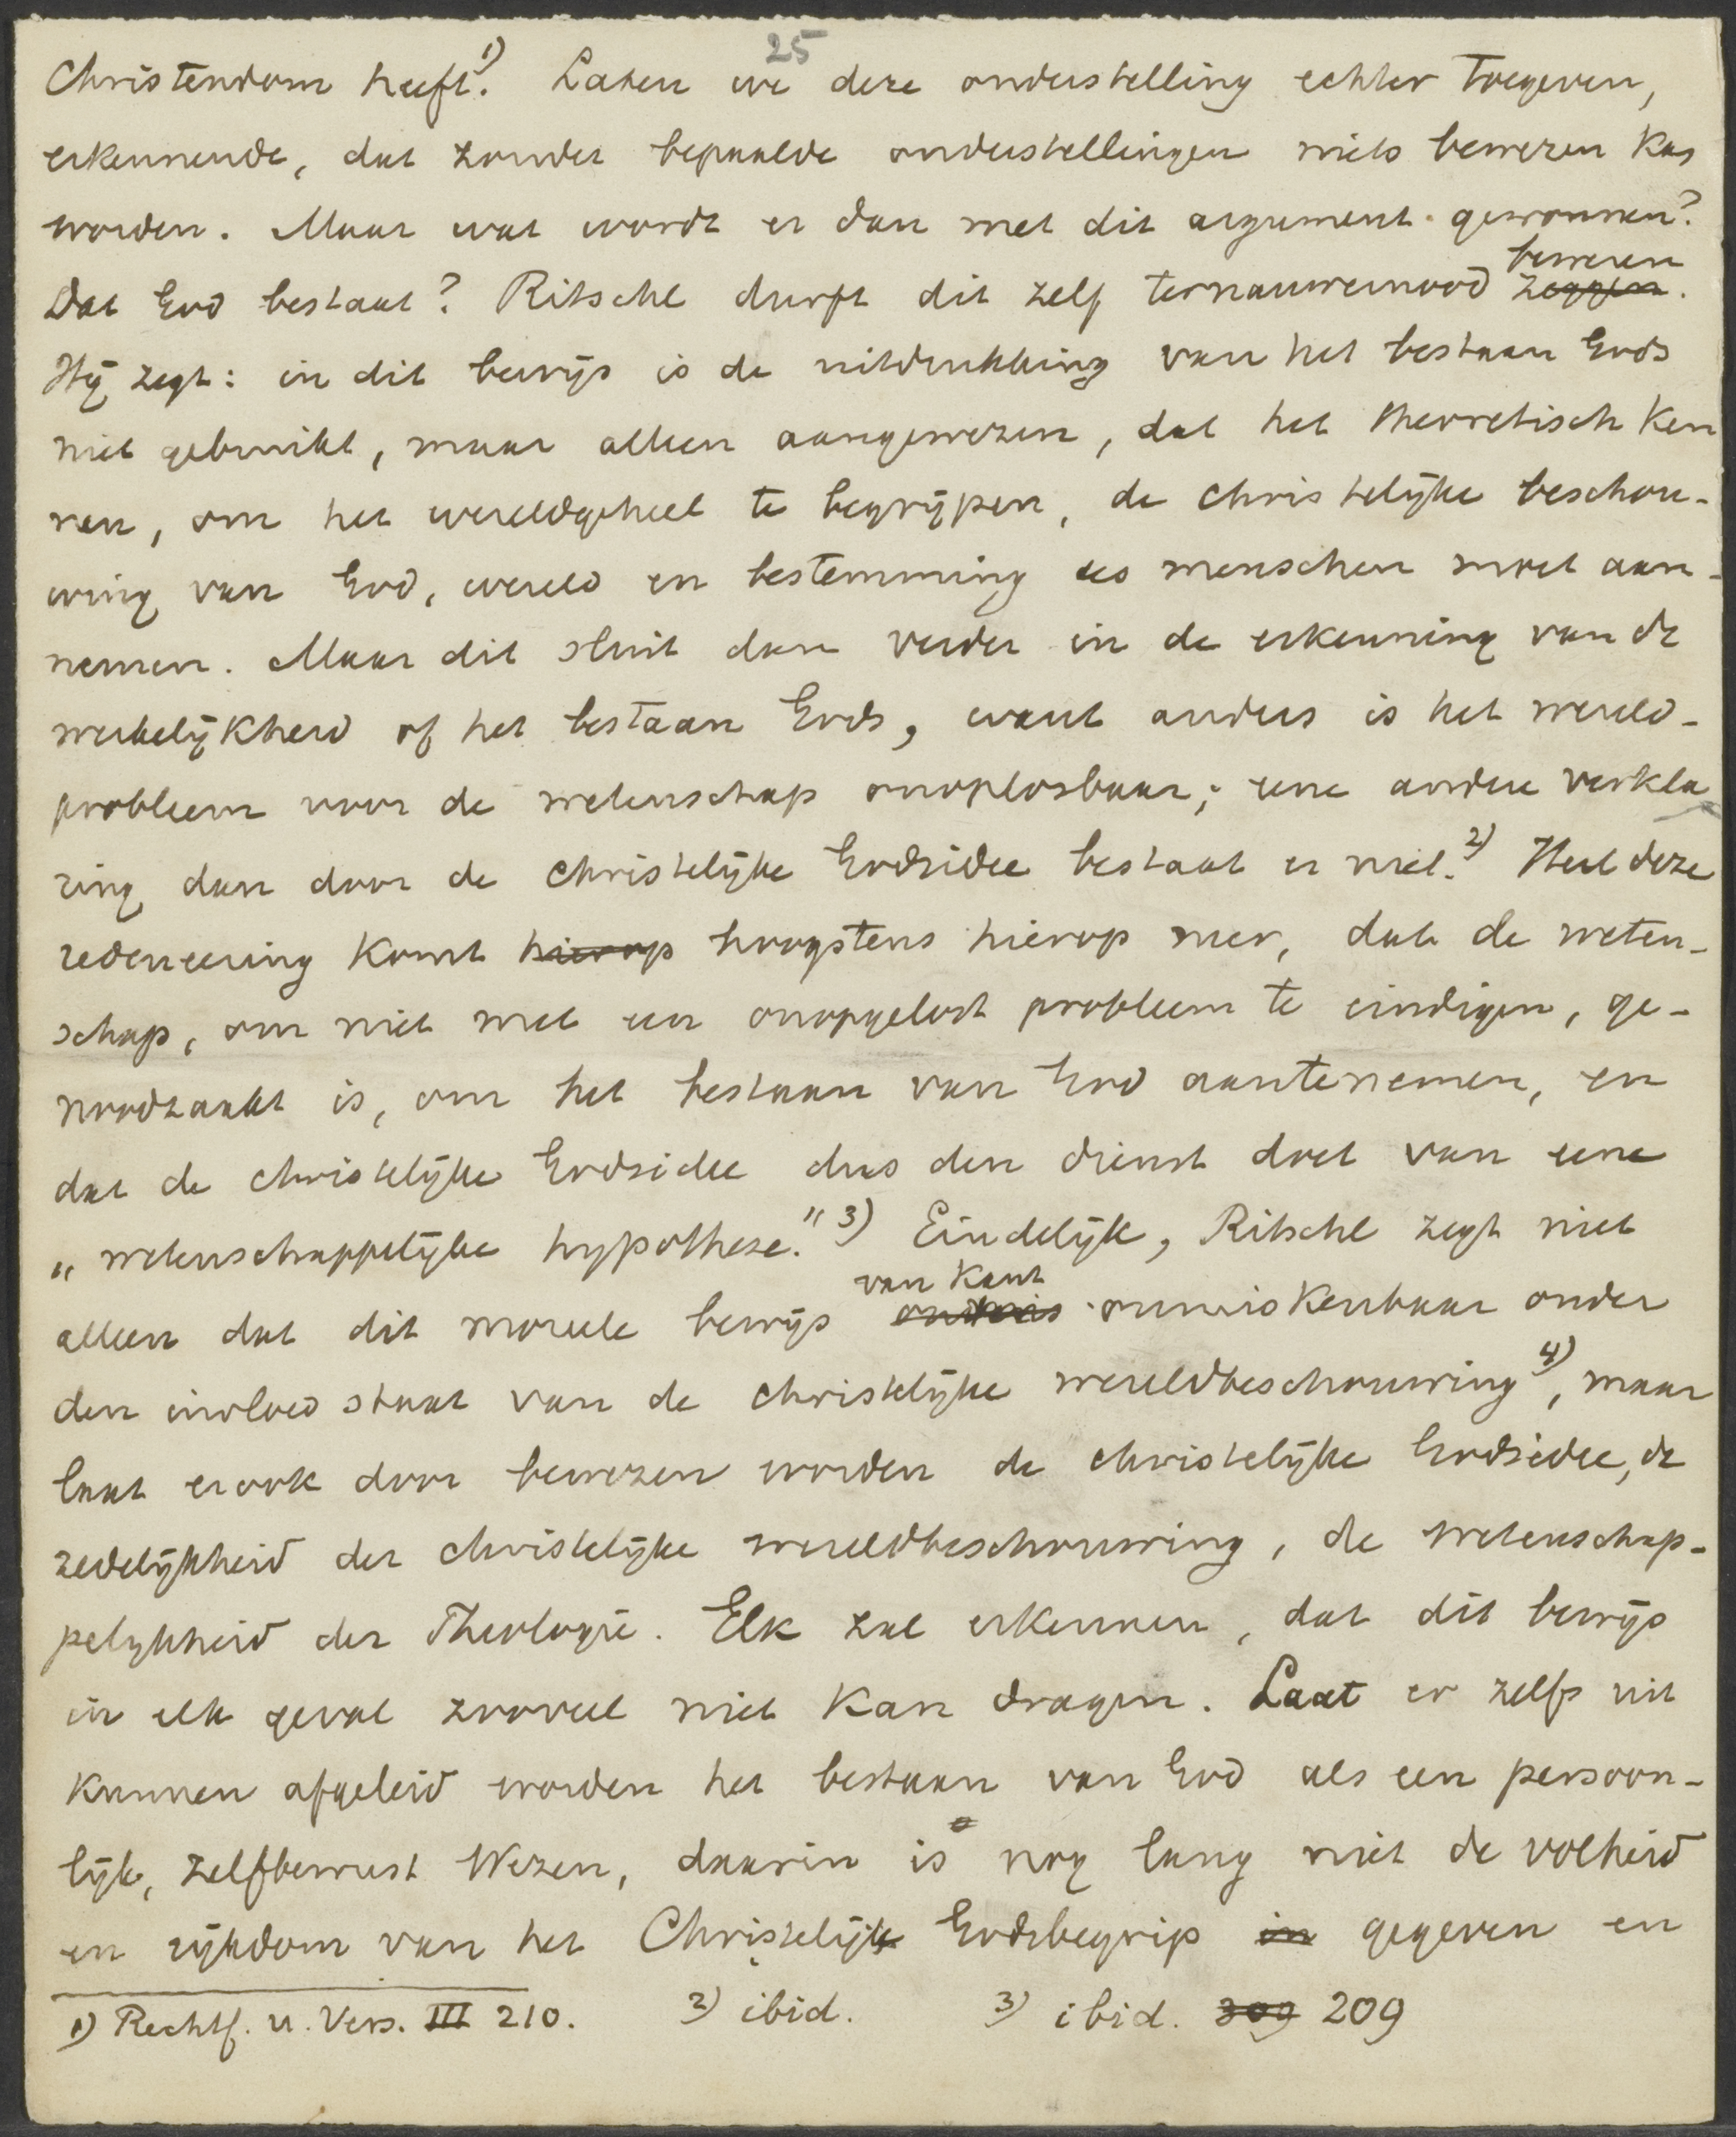 25
Christendom heeft.1) Laten we deze onderstelling echter toegeven,
erkennende, dat zonder bepaalde onderstellingen niets bewezen kan
worden. Maar wat wordt er dan met dit argument gewonnen?
Dat God bestaat? Ritschl durft dit zelf ternauwernood zeggen beweren.
Hij zegt: in dit bewijs is de uitdrukking van het bestaan Gods
niet gebruikt, maar alleen aangewezen, dat het theoretisch ken
nen, om het wereldgeheel te begrijpen, de christelijke beschou-
wing van God, wereld en bestemming des menschen moet aan-
nemen. Maar dit sluit dan verder in de erkenning van de
werkelijkheid of het bestaan Gods, want anders is het wereld-
probleem voor de wetenschap onoplosbaar; eene andere verkla
ring dan door de christelijke Godsidee bestaat er niet.2) Heel deze
redeneering komt hierop hoogstens hierop neer, dat de weten-
schap, om niet met een onopgelost probleem te eindigen, ge-
noodzaakt is, om het bestaan van God aantenemen, en
dat de christelijke Godsidee dus den dienst doet van eene
„wetenschappelijke hypothese." 3) Eindelijk, Ritschl zegt niet
alleen dat dit moreele bewijs van Kant onmiskenbaar onder
den invloed staat van de christelijke wereldbeschouwing 4), maar
laat er ook door bewezen worden de christelijke Godsidee, de
zedelijkheid der christelijke wereldbeschouwing, de wetenschap-
pelijkheid der Theologie. Elk zal erkennen, dat dit bewijs
in elk geval zooveel niet kan dragen. Laat er zelfs uit
kunnen afgeleid worden het bestaan van God als een persoon-
lijk, zelfbewust Wezen, daarin is nog lang niet de volheid
en rijkdom van het Christelijk Godsbegrip in gegeven en
1) Rechtf. u. Vers. III 210. 2) ibid. 3) ibid. 309 209